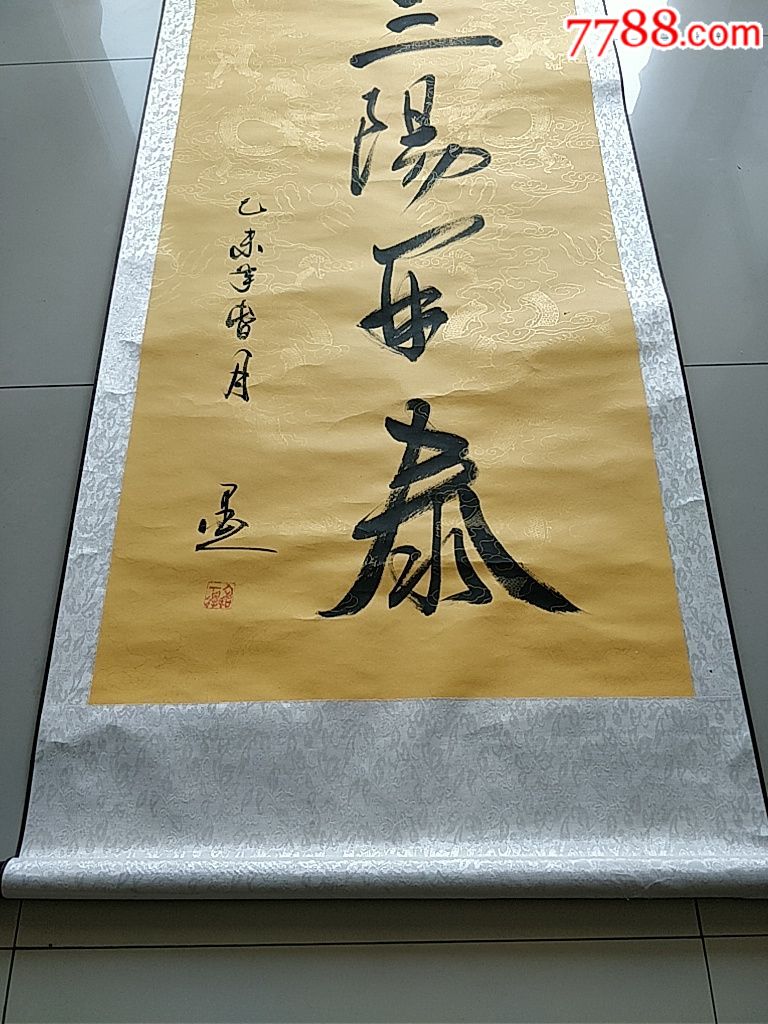 7788.com
三陽開泰
乙未年曾月